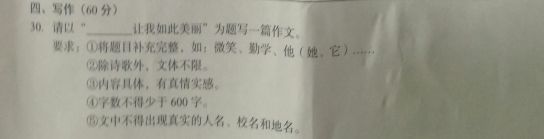 四、写作（60 分）
30. 请以“________让我如此美丽”为题写一篇作文。
要求：①将题目补充完整，如：微笑、勤学、他（她、它）……
②除诗歌外，文体不限。
③内容具体，有真情实感。
④字数不得少于 600 字。
⑤文中不得出现真实的人名、校名和地名。